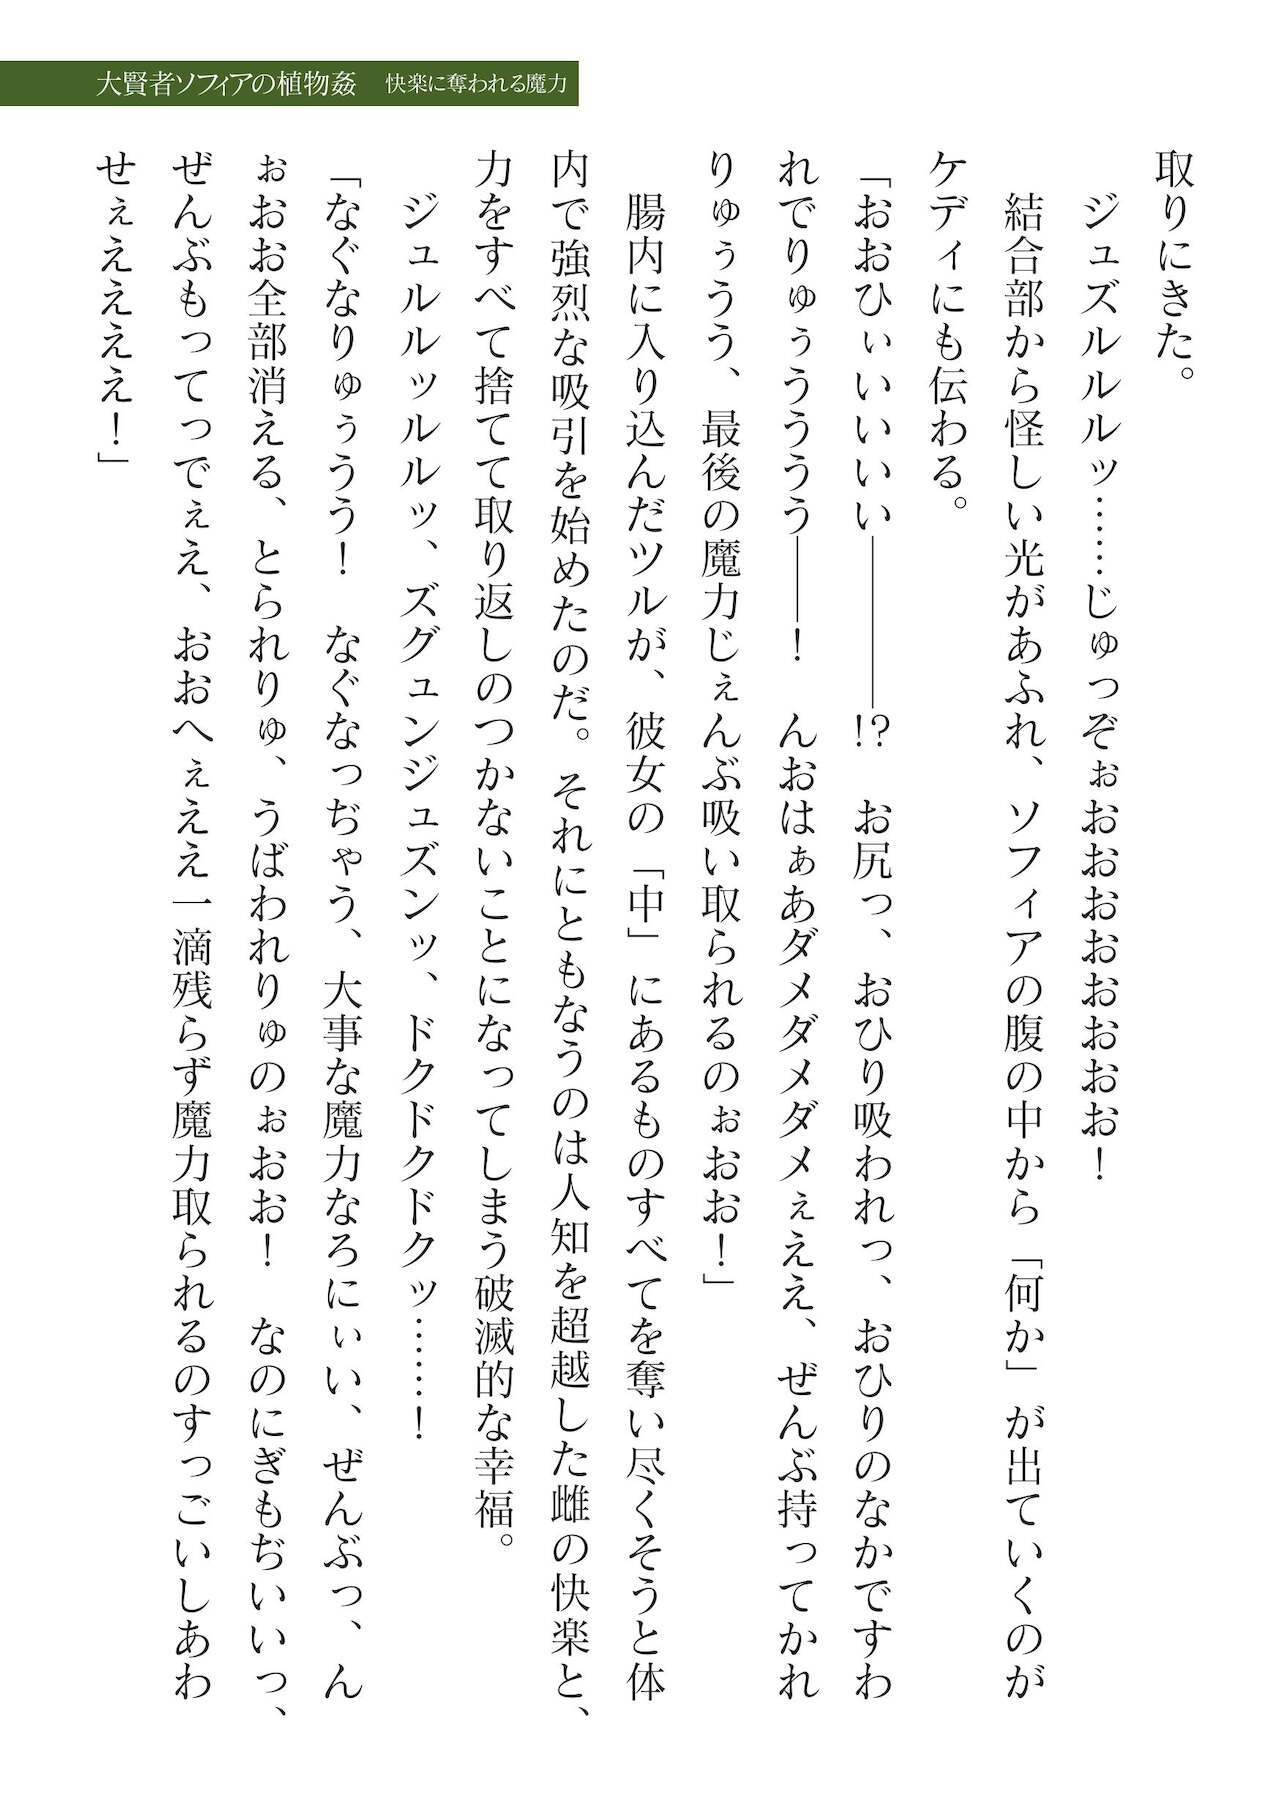 大賢者ソフィアの植物姦　快楽に奪われる魔力
取りにきた。
ジュズルルルッ……じゅっぞぉおおおおおおおお！
結合部から怪しい光があふれ、ソフィアの腹の中から「何か」が出ていくのが
ケディにも伝わる。
「おおひぃいいいい――――!?　お尻っ、おひり吸われっ、おひりのなかですわ
れでりゅぅうううう――！　んおはぁあダメダメダメぇええ、ぜんぶ持ってかれ
りゅぅうう、最後の魔力じぇんぶ吸い取られるのぉおお！」
腸内に入り込んだツルが、彼女の「中」にあるものすべてを奪い尽くそうと体
内で強烈な吸引を始めたのだ。それにともなうのは人知を超越した雌の快楽と、
力をすべて捨てて取り返しのつかないことになってしまう破滅的な幸福。
ジュルルルッルルッ、ズグュンジュズンッ、ドクドクドクッ……！
「なぐなりゅぅうう！　なぐなっぢゃう、大事な魔力なろにぃい、ぜんぶっ、ん
ぉおお全部消える、とられりゅ、うばわれりゅのぉおお！　なのにぎもぢいいっ、
ぜんぶもってっでぇえ、おおへぇええ一滴残らず魔力取られるのすっごいしあわ
せぇええええ！」